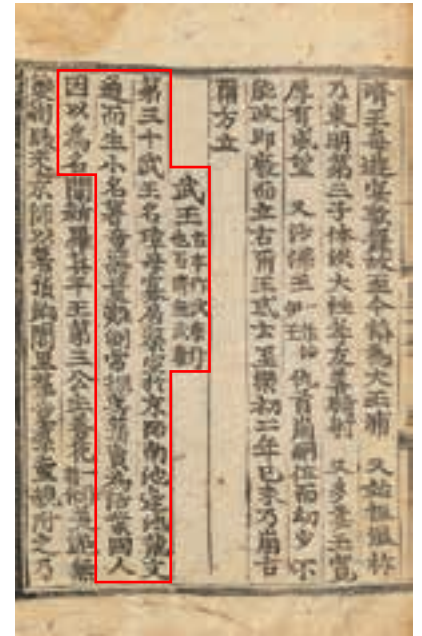 濟王每遊宴歌舞故至今稱為大王浦 又始祖溫祚
乃東明第三子体洪大性孝友善騎射 又多婁王寬
厚有威望 又沙沸王 一作沙伊王 仇首崩嗣位而幼少不
能政即廢而立古爾王或云至樂初二年己未乃崩古
爾方立
武王 古本作武康非也百濟無武康
第三十武王名璋母寡居築室於京師南池邊池龍交
通而生小名薯童器量難測常掘薯蕷賣為活業國人
因以為名聞新羅真平王第三公主善花 美艶無
髮來京師以薯蕷餉閭里羣童羣童親附之乃